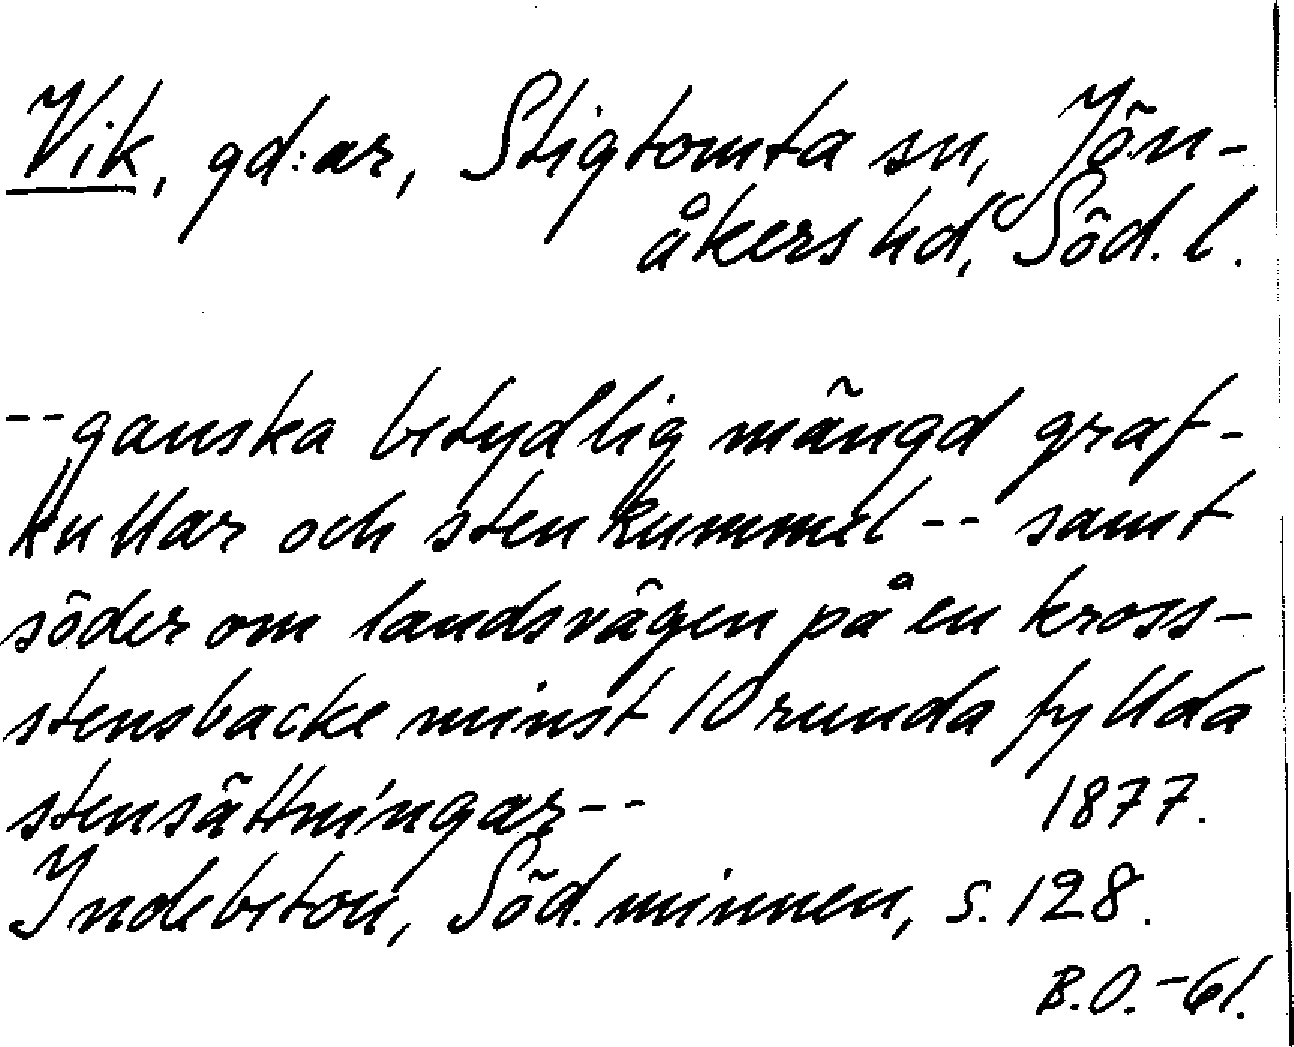 Vik, gd:ar, Stigtomta sn, Jön-
åkers hd, Söd. l.
--ganska betydlig mängd graf-
kullar och stenkummel -- samt
söder om landsvägen på en kross-
stensbacke minst 10 runda fyllda
stensättningar -- 1877.
Indebetou, Söd. minnen, s. 128.
B.O. -61.